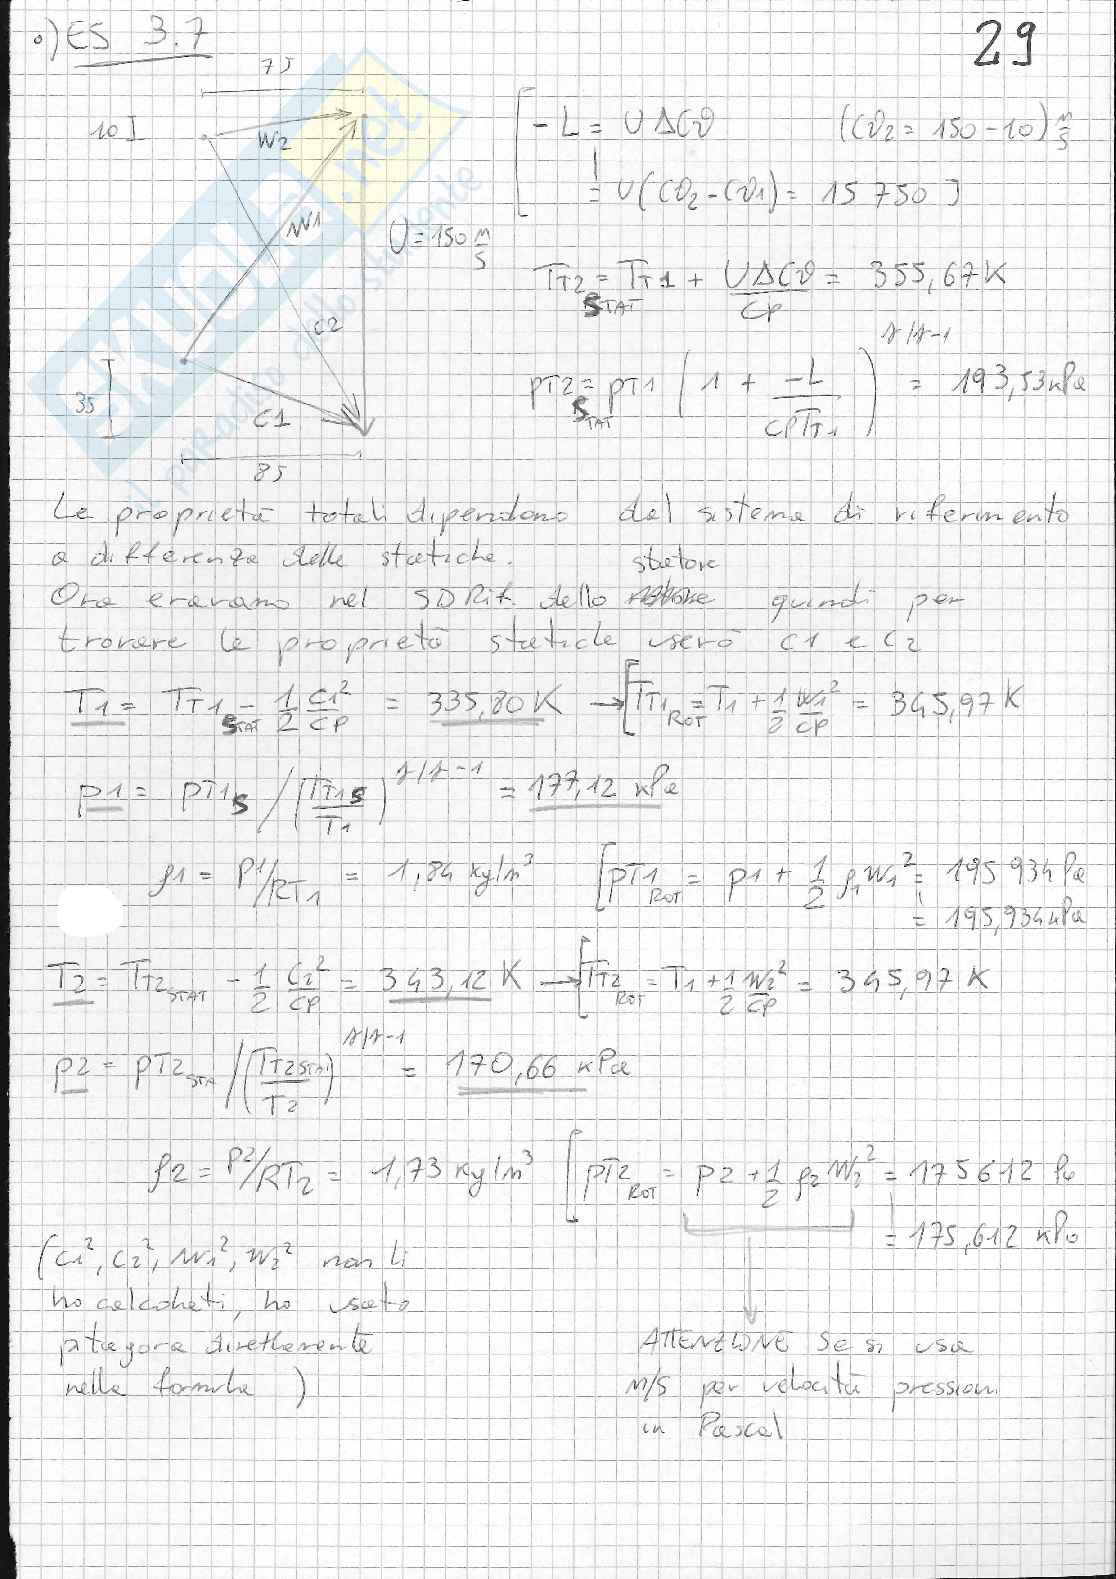 •) ES 3.7
29
75
10
W2
W1
U = 150 m/s
C2
35
C1
85
- L = U ΔCϑ (Cϑ2 = 150 - 10) m/s
= U(Cϑ2 - Cϑ1) = 15 750 J
TT2 STAT = TT1 + UΔCϑ / CP = 355,67 K
PT2 STAT = PT1 (1 + -L / CPTT1)^γ/γ-1 = 193,53 kPa
Le proprietà totali dipendono dal sistema di riferimento
a differenza delle statiche.
Ora eravamo nel SDRif. dello statore quindi per
trovare le proprietà statiche userò C1 e C2
T1 = TT1 STAT - 1/2 C1²/CP = 335,80 K → [TT1 ROT = T1 + 1/2 W1²/CP = 345,97 K
P1 = PT1S / (TT1S / T1)^γ/γ-1 = 177,12 kPa
ρ1 = P1/RT1 = 1,84 kg/m³ [PT1 ROT = P1 + 1/2 ρ1 W1² = 195 934 Pa
= 195,934 kPa
T2 = TT2 STAT - 1/2 C2²/CP = 343,12 K → [TT2 ROT = T1 + 1/2 W2²/CP = 345,97 K
P2 = PT2 STA / (TT2 STAT / T2)^γ/γ-1 = 170,66 kPa
ρ2 = P2/RT2 = 1,73 kg/m³ [PT2 ROT = P2 + 1/2 ρ2 W2² = 175 612 Pa
= 175,612 kPa
(C1², C2², W1², W2² non li
ho calcolati, ho usato
pitagora direttamente
nella formula)
ATTENZIONE Se si usa
M/S per velocità pressioni
in Pascal
SKUOLA.net
il paradiso dello studente